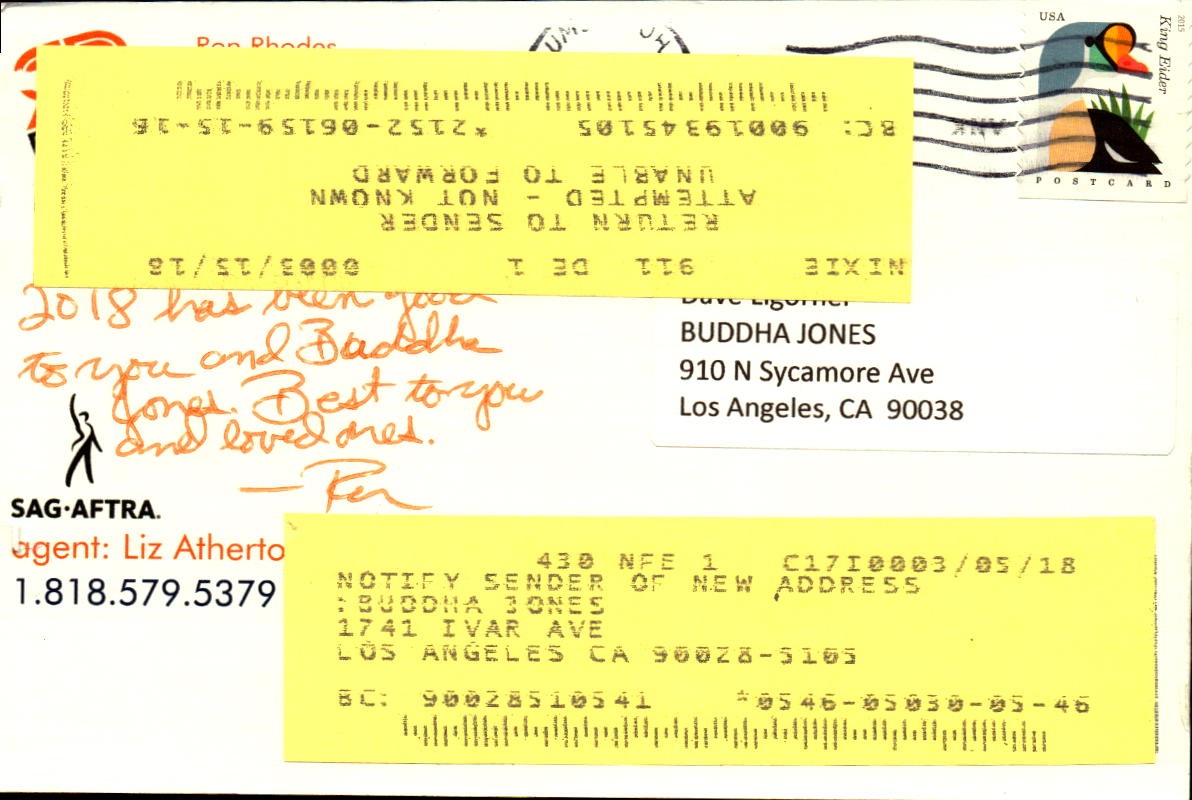 USA
2015
King Eider
POSTCARD
Ron Rhodes
BC: 90019345105 *2152-06159-15-16
UNABLE TO FORWARD
ATTEMPTED - NOT KNOWN
RETURN TO SENDER
NIXIE 911 DE 1 0003/15/18
2018 has been good
to you and Buddha
Jones. Best to you
and loved ones.
— Ron
Dave Ligorner
BUDDHA JONES
910 N Sycamore Ave
Los Angeles, CA 90038
SAG·AFTRA.
agent: Liz Atherto
1.818.579.5379
430 NFE 1 C17I0003/05/18
NOTIFY SENDER OF NEW ADDRESS
:BUDDHA JONES
1741 IVAR AVE
LOS ANGELES CA 90028-5105
BC: 90028510541 *0546-05030-05-46